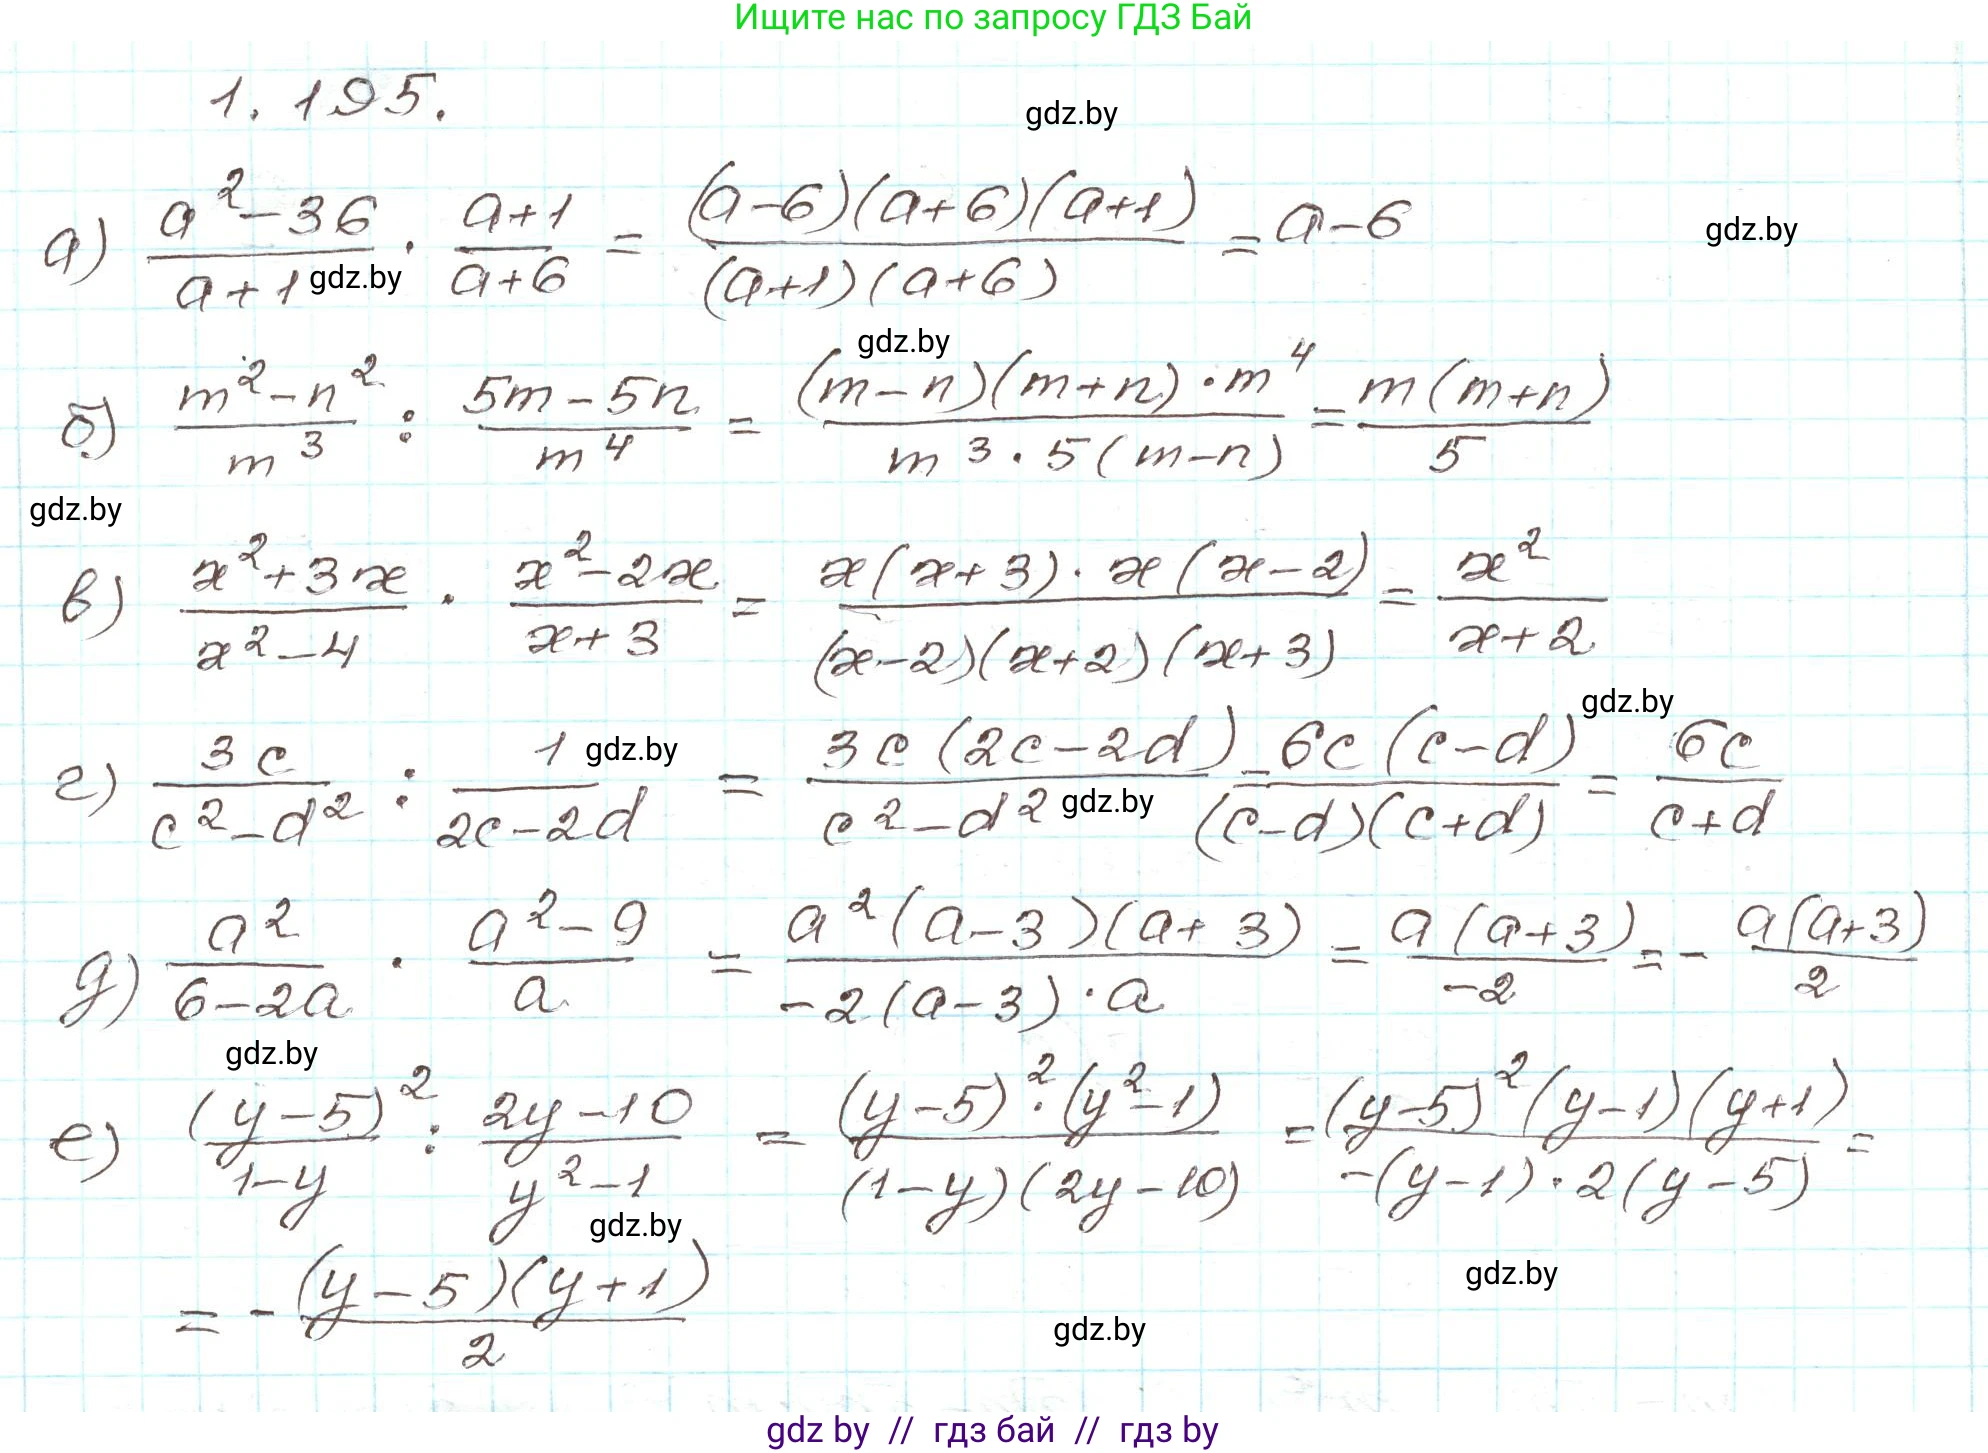 Ищите нас по запросу ГДЗ Бай
1.195.
gdz.by
а) (a²-36)/(a+1) · (a+1)/(a+6) = ((a-6)(a+6)(a+1))/((a+1)(a+6)) = a-6
gdz.by
gdz.by
gdz.by
б) (m²-n²)/m³ : (5m-5n)/m⁴ = ((m-n)(m+n)·m⁴)/(m³·5(m-n)) = (m(m+n))/5
gdz.by
в) (x²+3x)/(x²-4) · (x²-2x)/(x+3) = (x(x+3)·x(x-2))/((x-2)(x+2)(x+3)) = x²/(x+2)
gdz.by
gdz.by
г) 3c/(c²-d²) : 1/(2c-2d) = (3c(2c-2d))/(c²-d²) = (6c(c-d))/((c-d)(c+d)) = 6c/(c+d)
gdz.by
д) a²/(6-2a) · (a²-9)/a = (a²(a-3)(a+3))/(-2(a-3)·a) = (a(a+3))/(-2) = - (a(a+3))/2
gdz.by
е) (y-5)²/(1-y) : (2y-10)/(y²-1) = ((y-5)²·(y²-1))/((1-y)(2y-10)) = ((y-5)²(y-1)(y+1))/(-(y-1)·2(y-5)) =
gdz.by
gdz.by
= - ((y-5)(y+1))/2
gdz.by
gdz by // гдз бай // гдз by